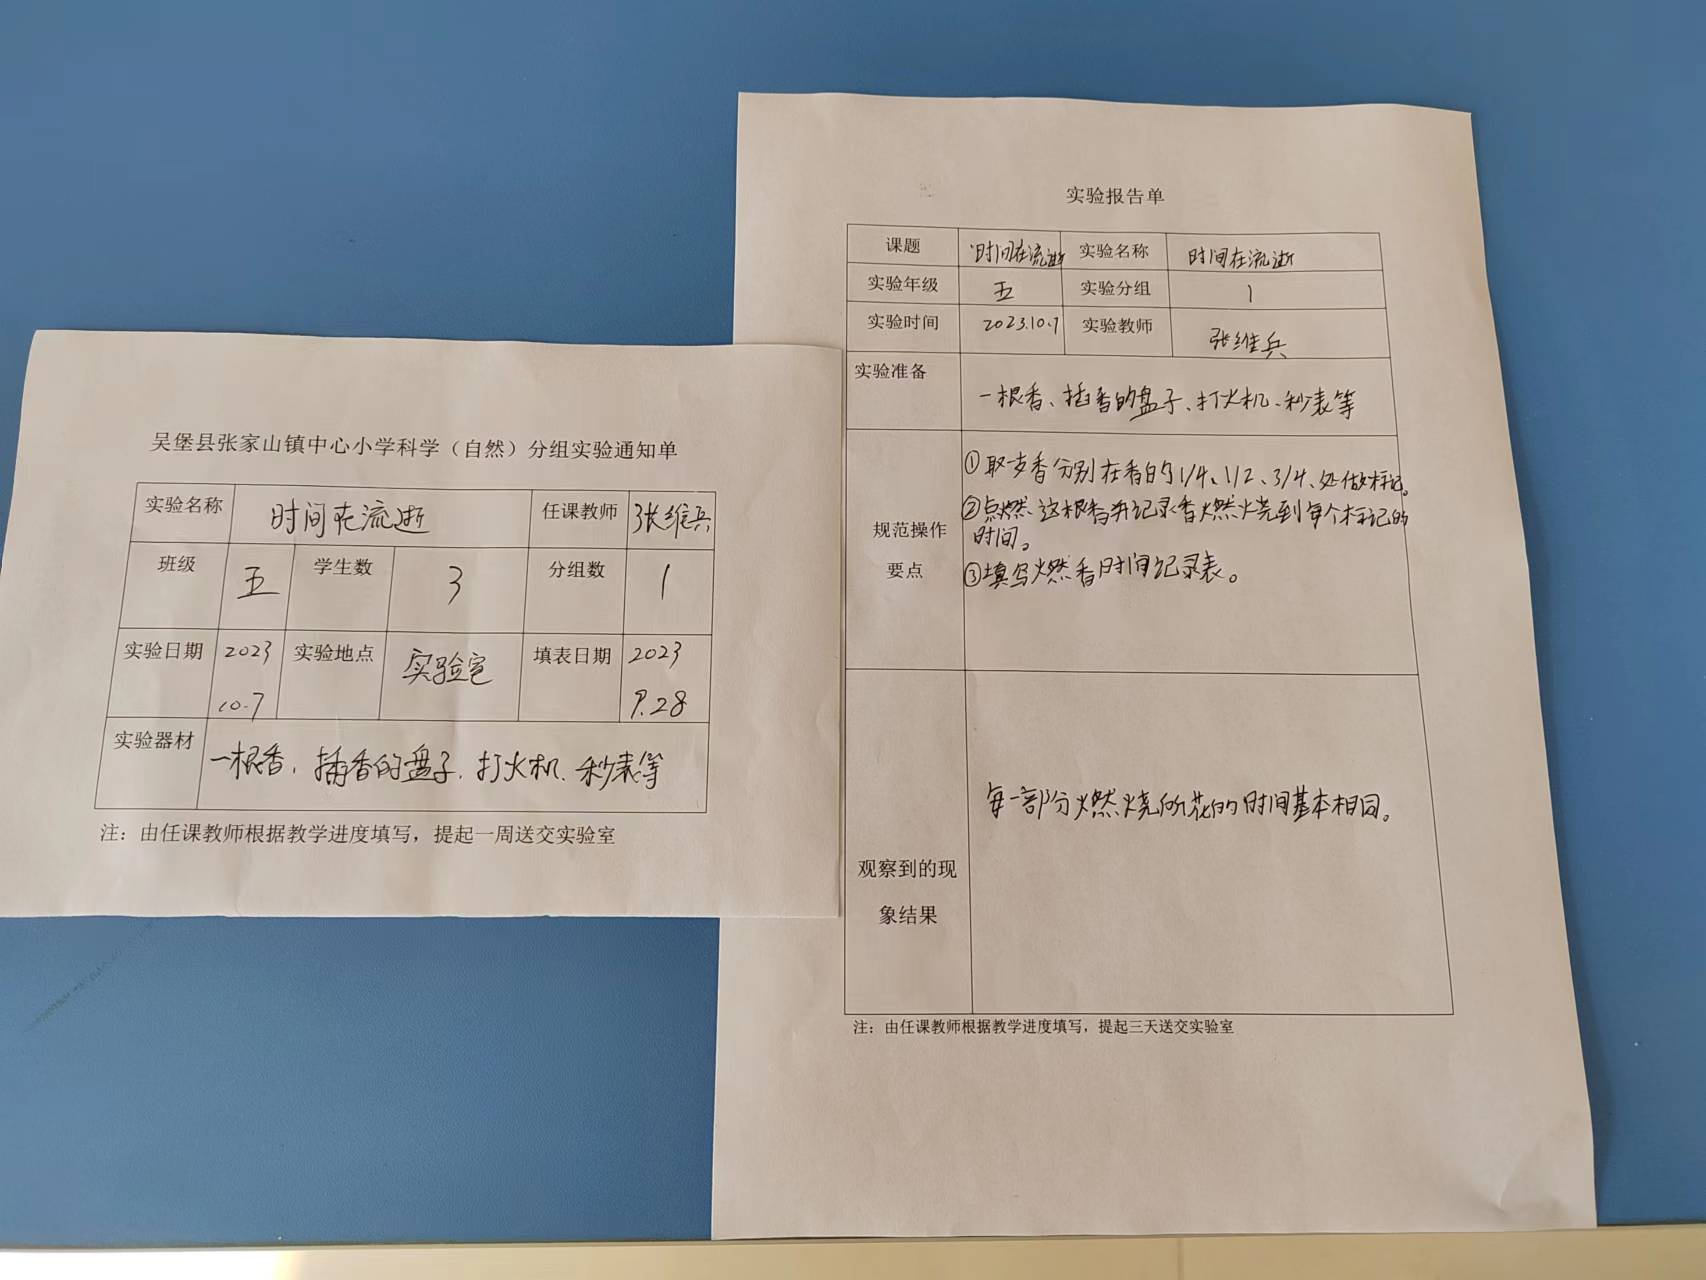 吴堡县张家山镇中心小学科学（自然）分组实验通知单
实验名称 时间在流逝 任课教师 张维兵
班级 五 学生数 3 分组数 1
实验日期 2023 10.7 实验地点 实验室 填表日期 2023 9.28
实验器材 一根香、插香的盘子、打火机、秒表等
注：由任课教师根据教学进度填写，提起一周送交实验室
实验报告单
课题 时间在流逝 实验名称 时间在流逝
实验年级 五 实验分组 1
实验时间 2023.10.7 实验教师 张维兵
实验准备 一根香、插香的盘子、打火机、秒表等
规范操作
要点
①取一支香分别在香的1/4、1/2、3/4、处做标记。
②点燃这根香并记录香燃烧到每个标记的
时间。
③填写燃香时间记录表。
观察到的现
象结果
每一部分燃烧所花的时间基本相同。
注：由任课教师根据教学进度填写，提起三天送交实验室